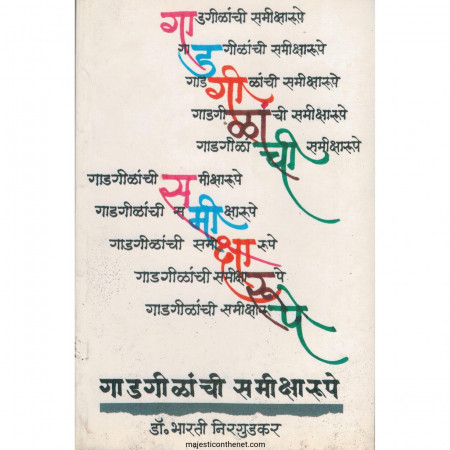 गाडगीळांची समीक्षारूपे
गाडगीळांची समीक्षारूपे
गाडगीळांची समीक्षारूपे
गाडगीळांची समीक्षारूपे
गाडगीळांची समीक्षारूपे
गाडगीळांची समीक्षारूपे
गाडगीळांची समीक्षारूपे
गाडगीळांची समीक्षारूपे
गाडगीळांची समीक्षारूपे
गाडगीळांची समीक्षारूपे
गाडगीळांची समीक्षारूपे
डॉ. भारती निरगुडकर
majesticonthenet.com